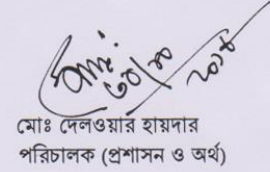 ৩০/১০
২০১৪
মোঃ দেলওয়ার হায়দার
পরিচালক (প্রশাসন ও অর্থ)